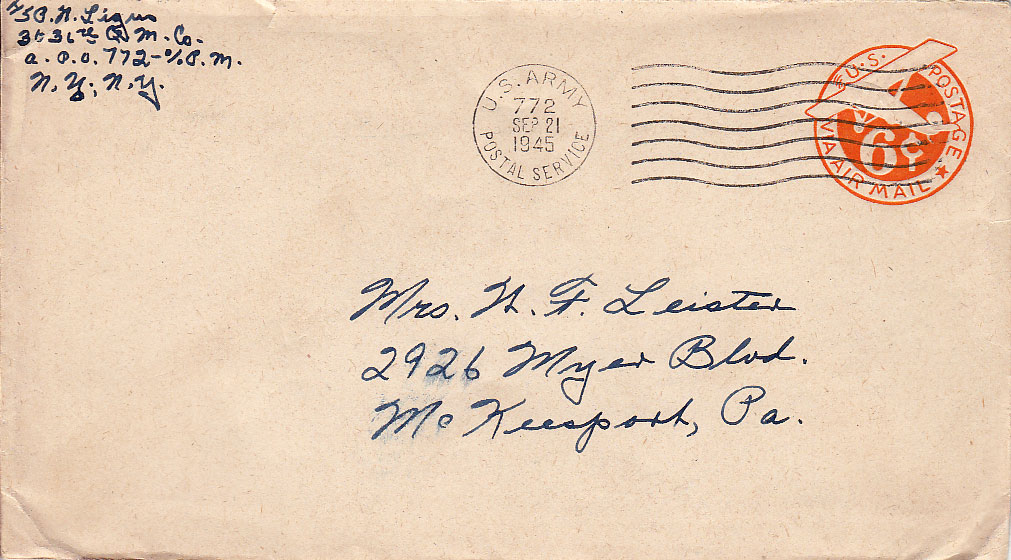 T/5 P. N. Ligus
3536th Q M. Co.
a. P.O. 772 - % P.M.
N. Y., N.Y.
U.S. ARMY
772
SEP 21
1945
POSTAL SERVICE
U.S. POSTAGE
6¢
VIA AIR MAIL
Mrs. H. F. Leister
2926 Myer Blvd.
McKeesport, Pa.